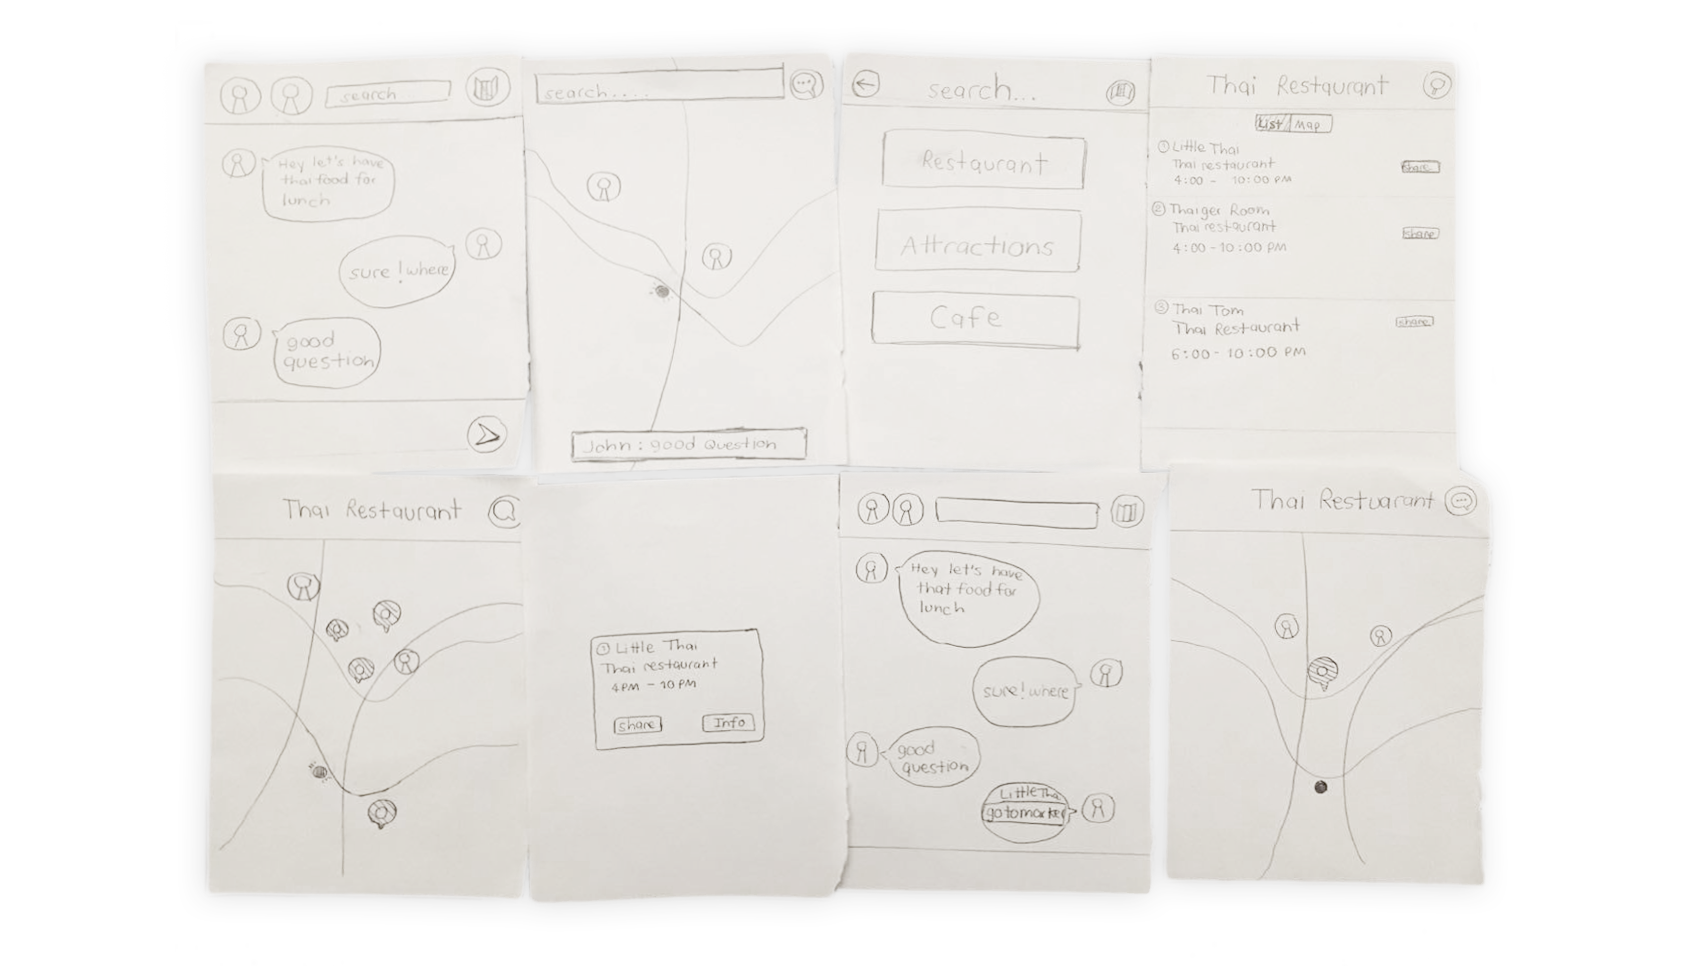 search
Hey let's have
thai food for
lunch
sure! where
good
question
search....
John: good Question
search...
Restaurant
Attractions
Cafe
Thai Restaurant
List/Map
① Little Thai
Thai restaurant
4:00 - 10:00 PM
share
② Thaiger Room
Thai restaurant
4:00-10:00 PM
share
③ Thai Tom
Thai Restaurant
6:00-10:00 PM
share
Thai Restaurant
① Little Thai
Thai restaurant
4PM - 10PM
share
Info
Hey let's have
that food for
lunch
sure! where
good
question
Little Tha
gotomarker
Thai Restuarant